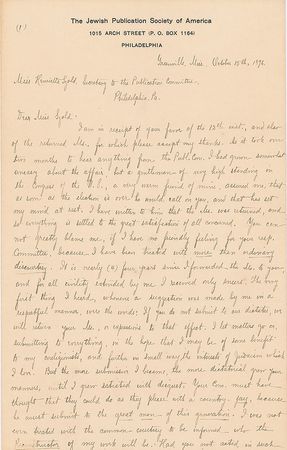 (1)
The Jewish Publication Society of America
1015 ARCH STREET (P. O. BOX 1164)
PHILADELPHIA
Greenville, Miss. October 15th, 1896.
Miss Henrietta Szold, Secretary to the Publication Committee,
Philadelphia, Pa.
Dear Miss Szold:
I am in receipt of your favor of the 12th inst., and also
of the returned Ms., for which please accept my thanks. As it took over
two months to hear anything from the Publ. Com. I had grown somewhat
uneasy about the affair, but a gentleman of very high standing in
the Congress of the U.S., a very warm friend of mine, assured me, that
as soon as the election is over he would call on you, and that has set
my mind at rest. I have written to him that the Ms. was returned, and
so everything is settled to the great satisfaction of all concerned. You can-
not greatly blame me, if I have no friendly feeling for your resp.
Committee, because I have been treated with more than ordinary
discourtesy. It is nearly (4) four years since I forwarded the Ms. to you,
and for all civility extended by me I received only sneers. The very
first thing I heard, when a suggestion was made by me in a
respectful manner, were the words: If you do not submit to our dictates, we
will return your Ms., or expressions to that effect. I let matters go on,
submitting to everything, in the hope that I may be of some benefit
to my coreligionists, and further in small way the interests of Judaism which
I love. But the more submissive I became, the more dictatorial grew your
manner, until I grew satiated with disgust. Your Com. must have
thought that they could do as they please with a country-
because he must submit to the great men of this generation. I was not
even treated with the common courtesy to be informed who the
of my work will be. Had you not acted in such